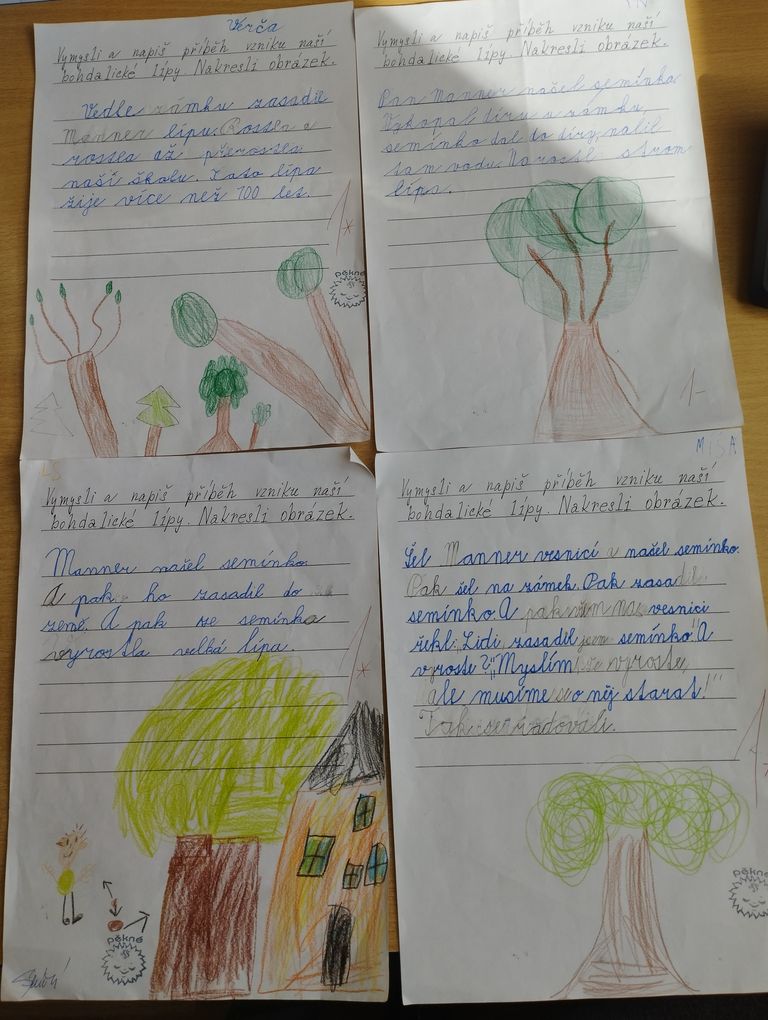 Verča
Vymysli a napiš příběh vzniku naší
bohdalické lípy. Nakresli obrázek.
Vedle zámku zasadil
Manner lípu. Rostla a
rostla až přerostla
naší školu. Tato lípa
žije více než 100 let.
1*
pěkné
Vymysli a napiš příběh vzniku naší
bohdalické lípy. Nakresli obrázek.
Pan Manner našel semínko.
Vykopal díru u zámku,
semínko dal do díry, nalil
tam vodu. Narostl strom
lípa.
1-
Vymysli a napiš příběh vzniku naší
bohdalické lípy. Nakresli obrázek.
Manner našel semínko.
A pak ho zasadil do
země. A pak ze semínka
vyrostla velká lípa.
1*
pěkné
MÍŠA
Vymysli a napiš příběh vzniku naší
bohdalické lípy. Nakresli obrázek.
Šel Manner vesnicí a našel semínko.
Pak šel na zámek. Pak zasadil
semínko. A pak na vesnici
řekl: „Lidi zasadil jsem semínko." A
vyroste? „Myslím že vyroste,
ale musíme se o něj starat!"
Tak se radovali.
1*
pěkné